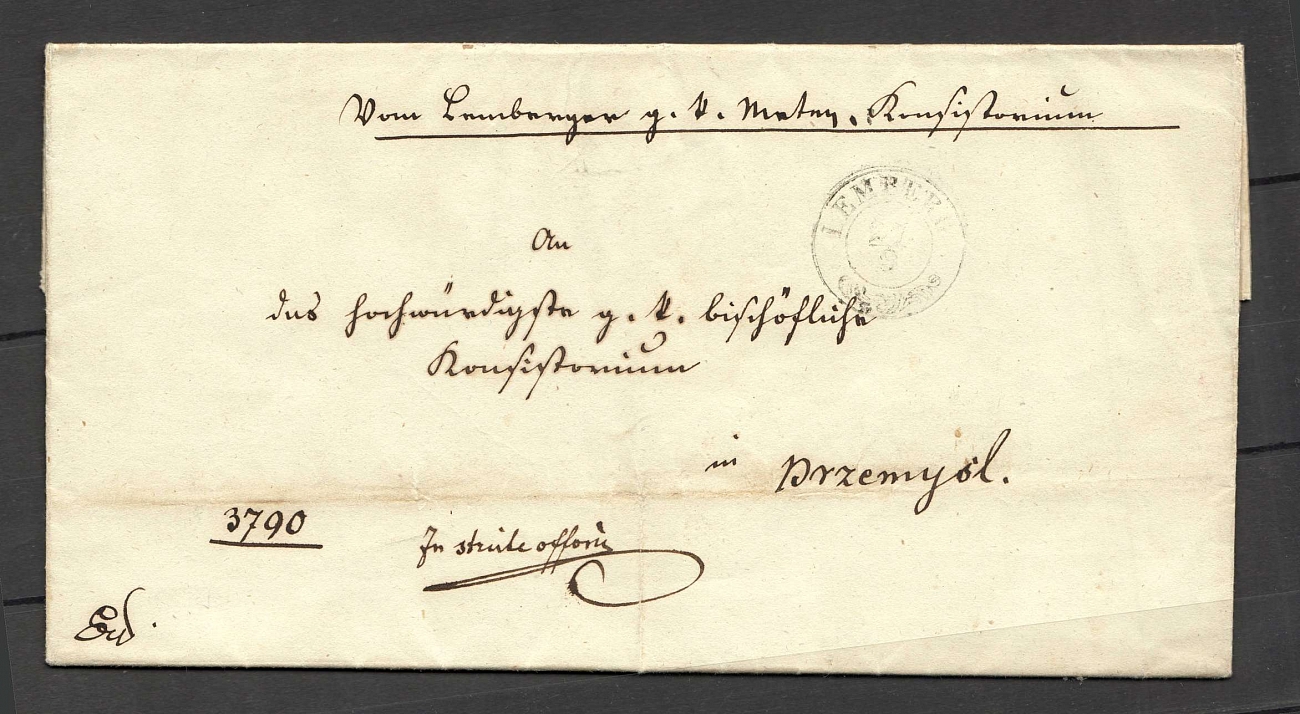 Vom Lemberger g. k. Metrop. Konsistorium
LEMBERG
An
das hochwürdigste g. k. bischöfliche
Konsistorium
in Przemysl.
3790
In stricte officiis